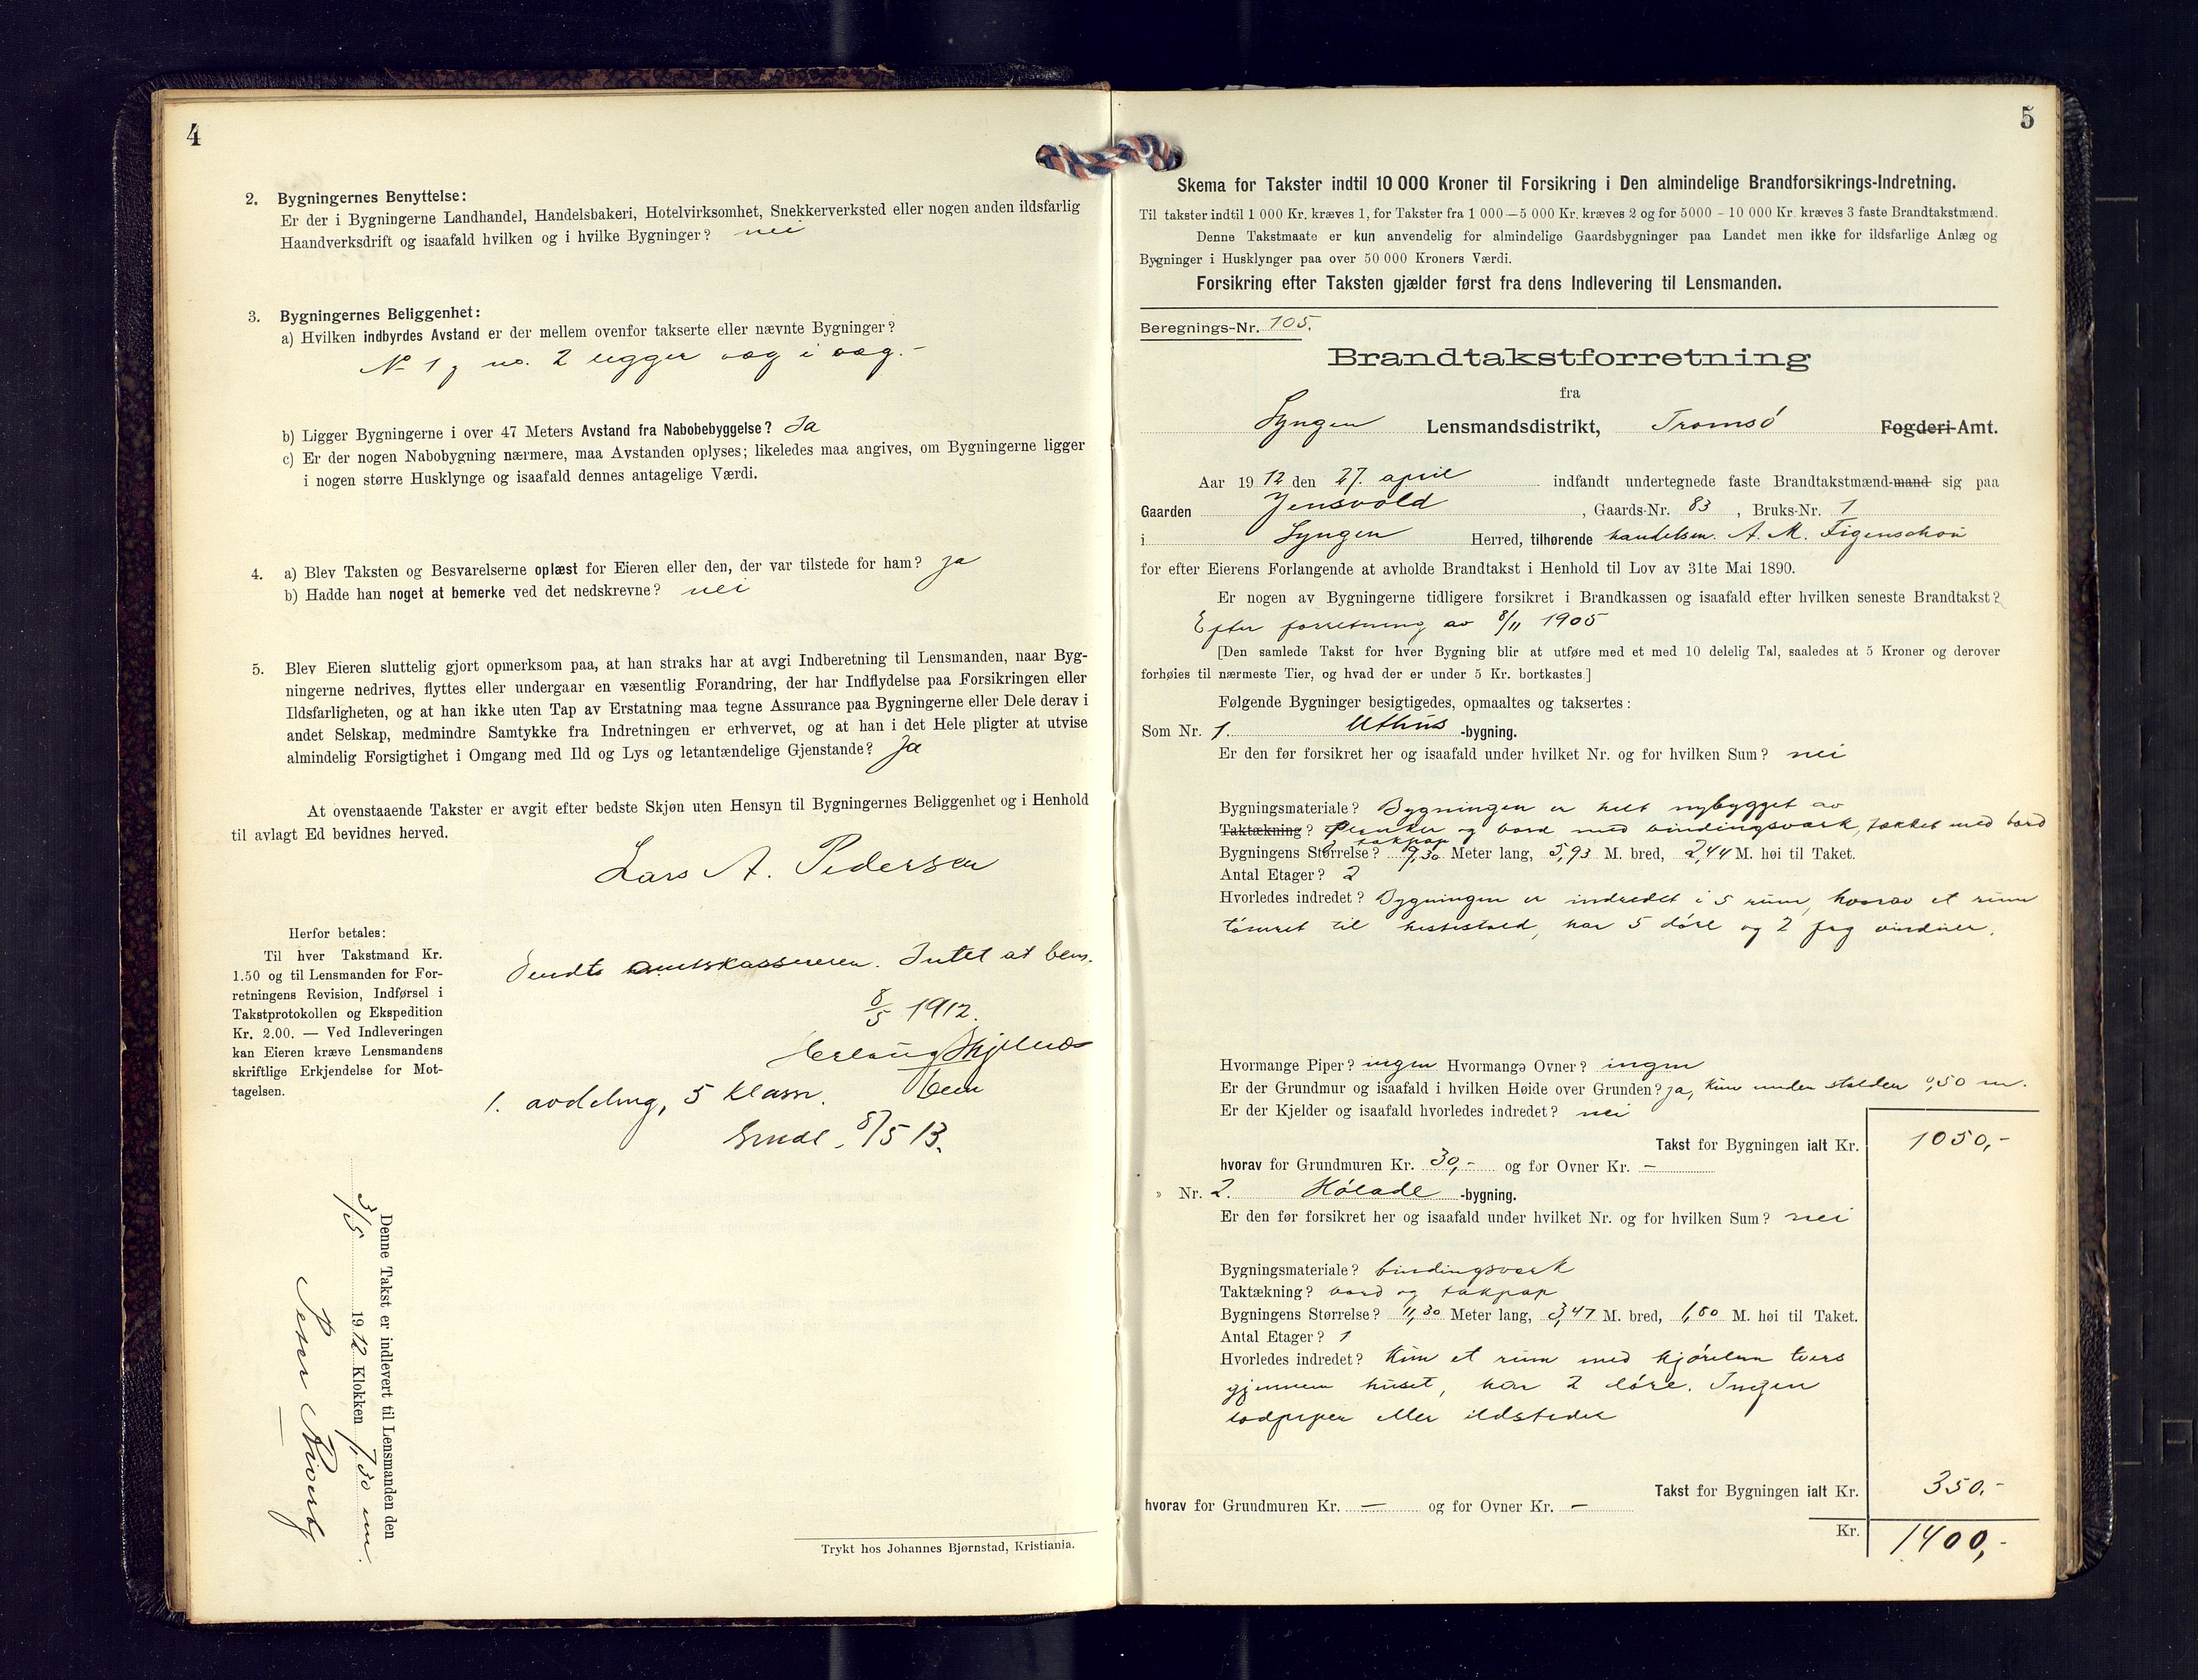 4
2. Bygningernes Benyttelse:
Er der i Bygningerne Landhandel, Handelsbakeri, Hotelvirksomhet, Snekkerverksted eller nogen anden ildsfarlig
Haandverksdrift og isaafald hvilken og i hvilke Bygninger? nei
3. Bygningernes Beliggenhet:
a) Hvilken indbyrdes Avstand er der mellem ovenfor takserte eller nævnte Bygninger?
No 1 og no. 2 ligger væg i væg.-
b) Ligger Bygningerne i over 47 Meters Avstand fra Nabobebyggelse? Ja
c) Er der nogen Nabobygning nærmere, maa Avstanden oplyses; likeledes maa angives, om Bygningerne ligger
i nogen større Husklynge og isaafald dennes antagelige Værdi.
4. a) Blev Taksten og Besvarelserne oplæst for Eieren eller den, der var tilstede for ham? Ja
b) Hadde han noget at bemerke ved det nedskrevne? nei
5. Blev Eieren sluttelig gjort opmerksom paa, at han straks har at avgi Indberetning til Lensmanden, naar Byg-
ningerne nedrives, flyttes eller undergaar en væsentlig Forandring, der har Indflydelse paa Forsikringen eller
Ildsfarligheten, og at han ikke uten Tap av Erstatning maa tegne Assurance paa Bygningerne eller Dele derav i
andet Selskap, medmindre Samtykke fra Indretningen er erhvervet, og at han i det Hele pligter at utvise
almindelig Forsigtighet i Omgang med Ild og Lys og letantændelige Gjenstande? Ja
At ovenstaaende Takster er avgit efter bedste Skjøn uten Hensyn til Bygningernes Beliggenhet og i Henhold
til avlagt Ed bevidnes herved.
Lars A. Pedersen
Herfor betales:
Til hver Takstmand Kr.
1.50 og til Lensmanden for For-
retningens Revision, Indførsel i
Takstprotokollen og Ekspedition
Kr. 2.00. — Ved Indleveringen
kan Eieren kræve Lensmandens
skriftlige Erkjendelse for Mot-
tagelsen.
Sendts amtskassereren. Intet at bem.
8/5 1912.
1. avdeling, 5 klasse.
8/5 13.
Denne Takst er indlevert til Lensmanden den
3/5 1912 Klokken 7,30 em.
Peder
Trykt hos Johannes Bjørnstad, Kristiania.
5
Skema for Takster indtil 10 000 Kroner til Forsikring i Den almindelige Brandforsikrings-Indretning.
Til takster indtil 1 000 Kr. kræves 1, for Takster fra 1 000—5 000 Kr. kræves 2 og for 5000 - 10 000 Kr. kræves 3 faste Brandtakstmænd.
Denne Takstmaate er kun anvendelig for almindelige Gaardsbygninger paa Landet men ikke for ildsfarlige Anlæg og
Bygninger i Husklynger paa over 50 000 Kroners Værdi.
Forsikring efter Taksten gjælder først fra dens Indlevering til Lensmanden.
Beregnings-Nr. 105.
Brandtakstforretning
fra
Lyngen Lensmandsdistrikt, Tromsø Fogderi-Amt.
Aar 1912 den 27. april indfandt undertegnede faste Brandtakstmænd-mand sig paa
Gaarden Jensvold, Gaards-Nr. 83, Bruks-Nr. 1
i Lyngen Herred, tilhørende handelsm. A. M. Figenschou
for efter Eierens Forlangende at avholde Brandtakst i Henhold til Lov av 31te Mai 1890.
Er nogen av Bygningerne tidligere forsikret i Brandkassen og isaafald efter hvilken seneste Brandtakst?
Efter forretning av 8/11 1905
[Den samlede Takst for hver Bygning blir at utføre med et med 10 delelig Tal, saaledes at 5 Kroner og derover
forhøies til nærmeste Tier, og hvad der er under 5 Kr. bortkastes.]
Følgende Bygninger besigtigedes, opmaaltes og taksertes:
Som Nr. 1. Uthus -bygning.
Er den før forsikret her og isaafald under hvilket Nr. og for hvilken Sum? nei
Bygningsmateriale? Bygningen er helt nybygget av
Taktækning? Planker og bord med bindingsverk, tækket med bord
og takpap
Bygningens Størrelse? 9,30 Meter lang, 5,93 M. bred, 2,44 M. høi til Taket.
Antal Etager? 2
Hvorledes indredet? Bygningen er indredet i 5 rum, hvorav et rum
tømret til hestestald, har 5 døre og 2 fag vinduer.
Hvormange Piper? ingen Hvormange Ovner? ingen
Er der Grundmur og isaafald i hvilken Høide over Grunden? ja, kun under stalden 0,50 m.
Er der Kjelder og isaafald hvorledes indredet? nei
Takst for Bygningen ialt Kr. 1050,-
hvorav for Grundmuren Kr. 30,- og for Ovner Kr. –
» Nr. 2. Hølade -bygning.
Er den før forsikret her og isaafald under hvilket Nr. og for hvilken Sum? nei
Bygningsmateriale? bindingsverk
Taktækning? bord og takpap
Bygningens Størrelse? 11,30 Meter lang, 3,47 M. bred, 1,80 M. høi til Taket.
Antal Etager? 1
Hvorledes indredet? Kun et rum med kjørelem tvers
gjennem huset, har 2 døre. Ingen
lodpiper eller ildsteder
Takst for Bygningen ialt Kr. 350.-
hvorav for Grundmuren Kr. — og for Ovner Kr. –
Kr. 1400,-